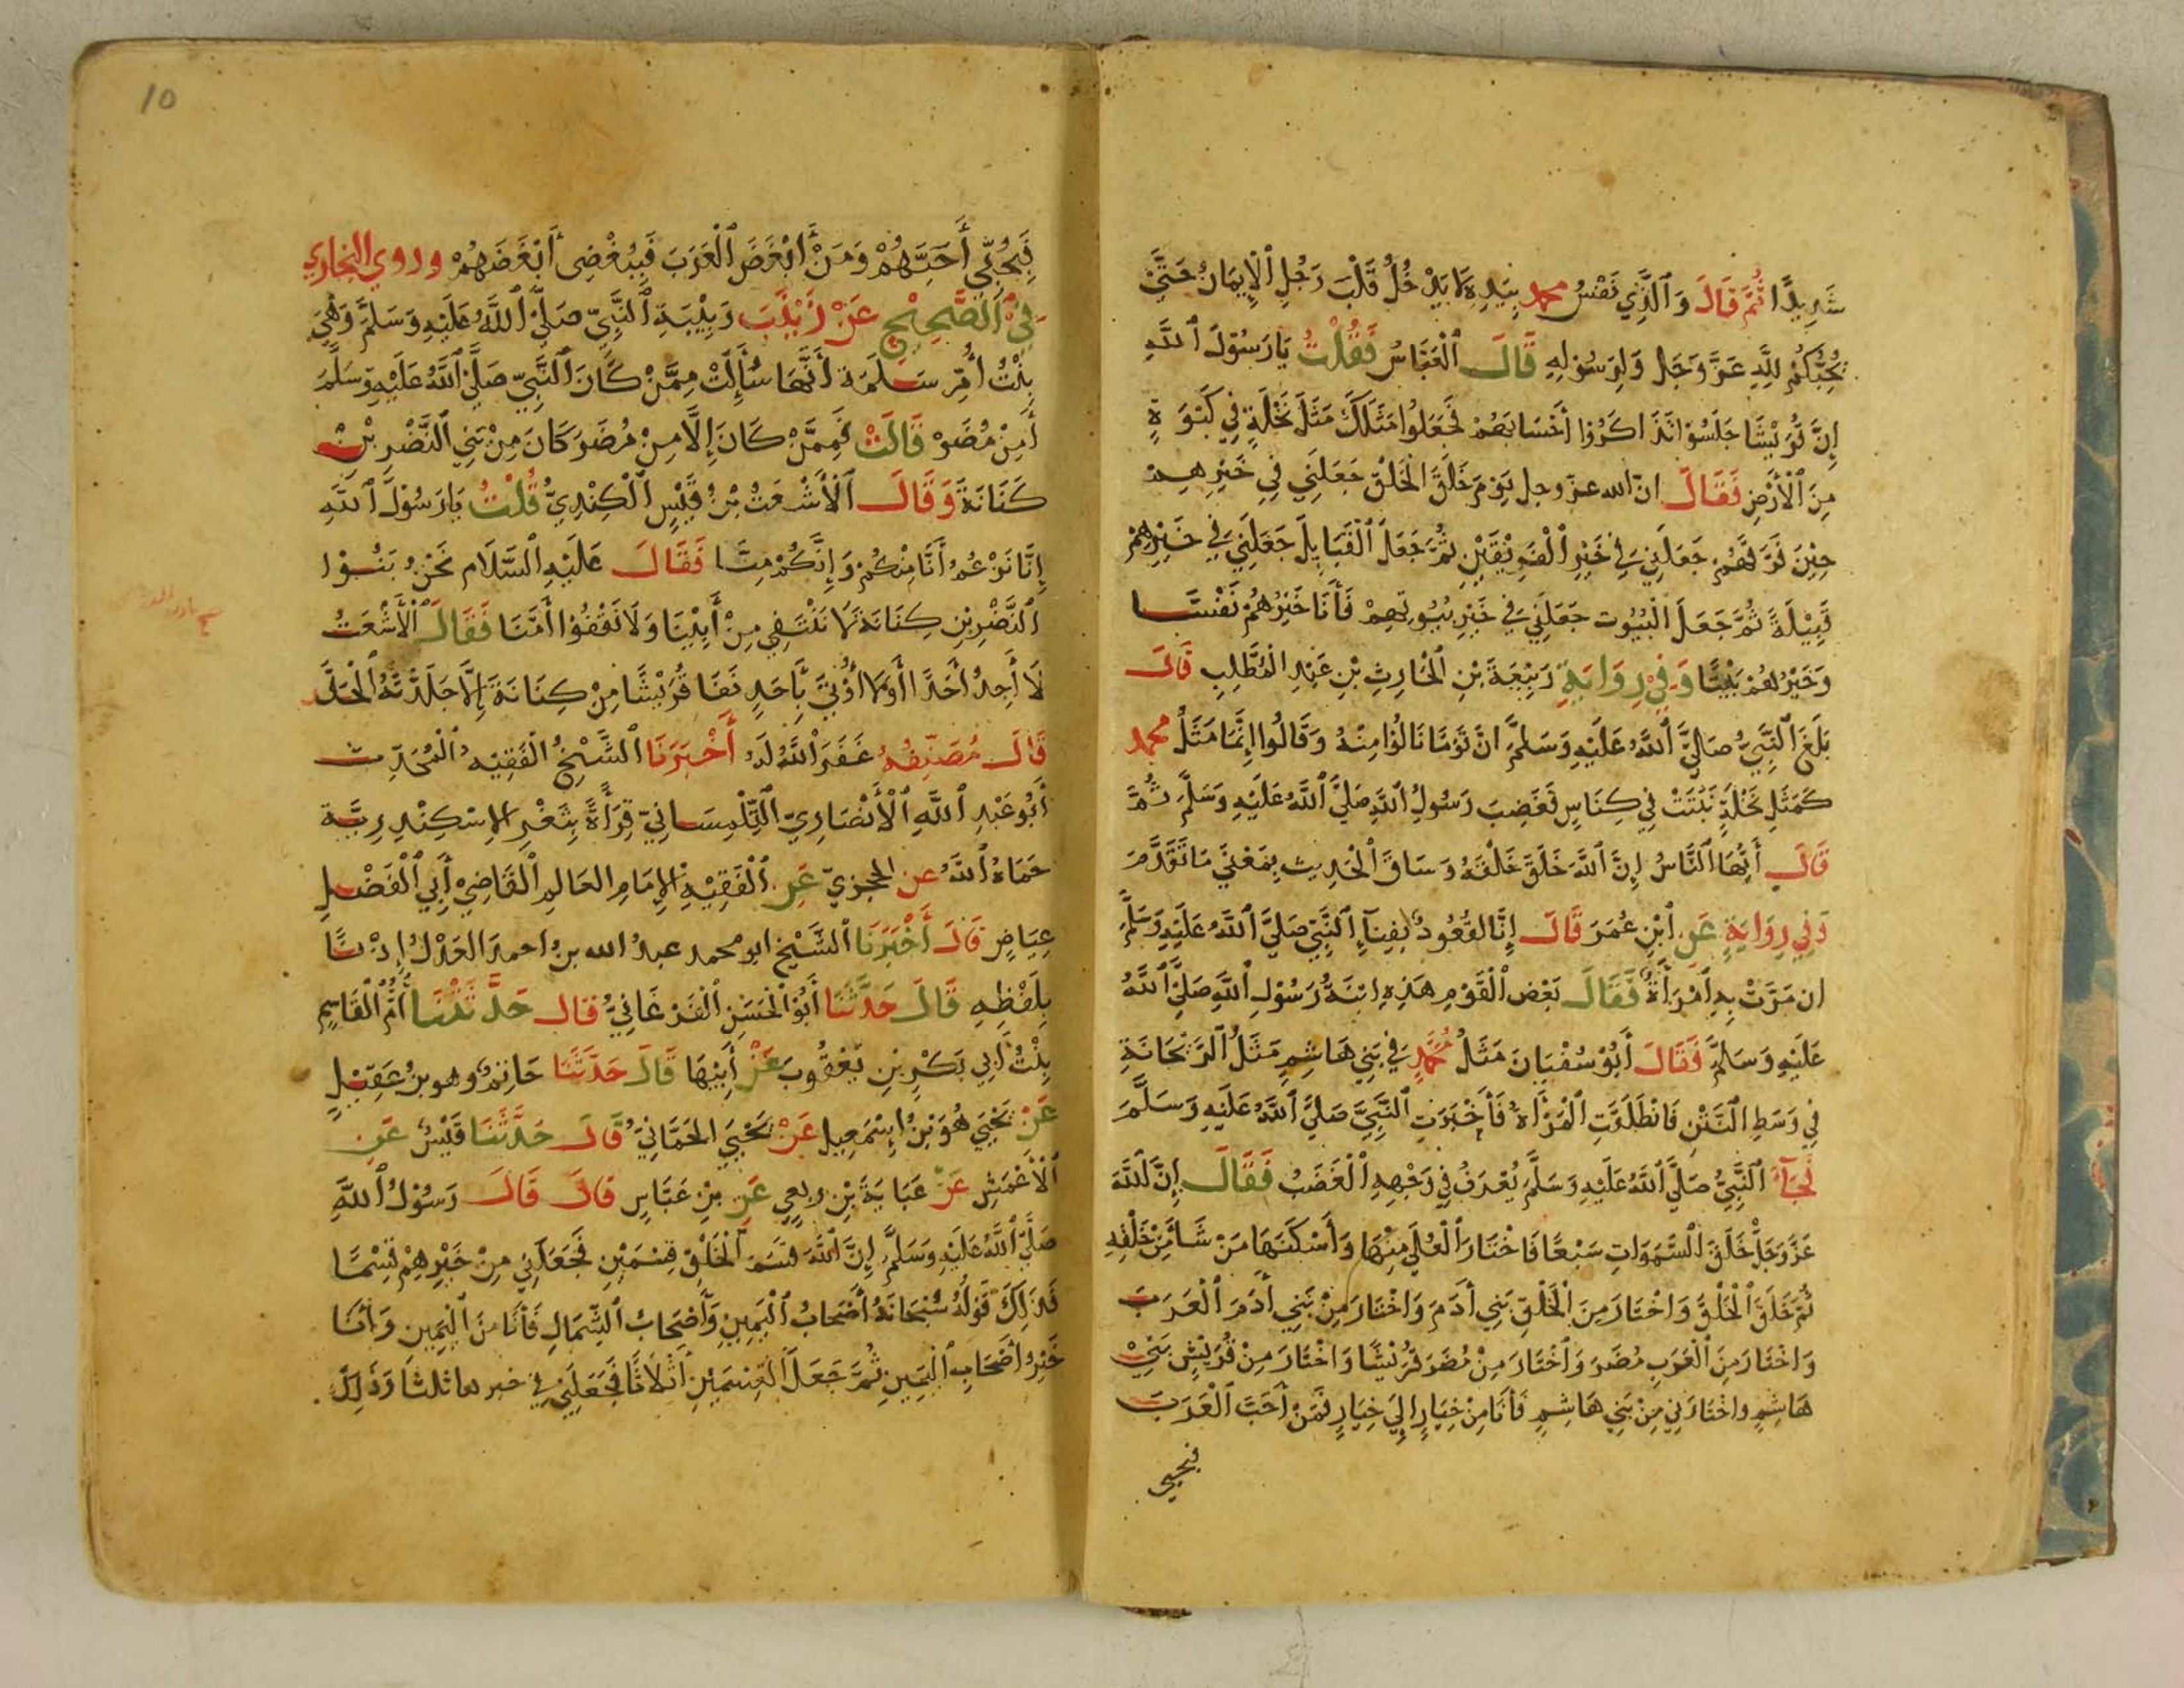 شَدِيدًا ثُمَّ قَالَ وَالَّذِي نَفْسُ محمد بِيَدِهِ لَا يَدْخُلُ قَلْبَ رَجُلٍ الْإِيمَانُ حَتَّى
يُحِبَّكُمْ لِلَّهِ عَزَّ وَجَل وَلِرَسُولِهِ قَالَ الْعَبَّاسُ فَقُلْتُ يَا رَسُولَ اللَّهِ
إِنَّ قُرَيْشًا جَلَسُوا تَذَاكَرُوا أَحْسَابَهُمْ فَجَعَلُوا مَثَلَكَ مَثَلَ نَخْلَةٍ فِي كَبْوَةٍ
مِنَ الْأَرْضِ فَقَالَ ان الله عز وجل يَوْمَ خَلَقَ الْخَلْقَ جَعَلَنِي فِي خَيْرِهِمْ
حِيْنَ فَرَّقَهُمْ جَعَلَنِي فِي خَيْرِ الْفَرِيْقَيْنِ ثُمَّ جَعَلَ الْقَبَايِلَ جَعَلَنِي فِي خَيْرِهِمْ
قَبِيْلَةً ثُمَّ جَعَلَ الْبُيُوت جَعَلَنِي فِي خَيْرِ بُيُوتِهِمْ فَأَنَا خَيْرُهُمْ نَفْسًا
وَخَيْرُهُمْ بَيْتًا وَفِي رِوَايَةِ رَبِيْعَةَ بْنِ الْحَارِثِ بْنِ عَبْدِ الْمُطَّلِبِ قَالَ
بَلَغَ النَّبِيَّ صَلَّى اللَّهُ عَلَيْهِ وَسَلَّمَ انَّ قَوْمًا نَالُوا مِنْهُ وَقَالُوا إِنَّمَا مَثَلُ محمد
كَمَثَلِ نَخْلَةٍ نَبَتَتْ فِي كِنَاسٍ فَغَضِبَ رَسُولُ اللَّهِ صَلَّى اللَّهُ عَلَيْهِ وَسَلَّمَ ثُمَّ
قَالَ أَيُّهَا النَّاسُ إِنَّ اللَّهَ خَلَقَ خَلْقَهُ وَسَاقَ الْحَدِيث بِمَعْنَى مَا تَقَدَّمَ
وَفِي رِوَايَةٍ عَنِ ابْنِ عُمَرَ قَالَ إِنَّا لَقُعُودٌ بِفِنَآءِ النَّبِيِّ صَلَّى اللَّهُ عَلَيْهِ وَسَلَّمَ
ان مَرَّتْ بِهِ امْرَأَةٌ فَقَالَ بَعْض الْقَوْمِ هَذِهِ ابْنَةُ رَسُوْلِ اللَّهِ صَلَّى اللَّهُ
عَلَيْهِ وَسَلَّمَ فَقَالَ أَبُوْ سُفْيَانَ مَثَلُ مُحَمَّدٍ فِي بَنِي هَاشِمٍ مَثَلُ الرَّيْحَانَةِ
فِي وَسَطِ النَّتْنِ فَانْطَلَقَتِ الْمَرْأَةُ فَأَخْبَرَتِ النَّبِيَّ صَلَّى اللَّهُ عَلَيْهِ وَسَلَّمَ
فَجَآءَ النَّبِيُّ صَلَّى اللَّهُ عَلَيْهِ وَسَلَّمَ يُعْرَفُ فِي وَجْهِهِ الْغَضَبُ فَقَالَ إِنَّ اللَّهَ
عَزَّ وَجَلَّ خَلَقَ السَّمَوَاتِ سَبْعًا فَاخْتَارَ الْعُلَى مِنْهَا وَأَسْكَنَهَا مَنْ شَاءَ مِنْ خَلْقِهِ
ثُمَّ خَلَقَ الْخَلْقَ وَاخْتَارَ مِنَ الْخَلْقِ بَنِي أَدَمَ وَاخْتَارَ مِنْ بَنِي أَدَمَ الْعَرَبَ
وَاخْتَارَ مِنَ الْعَرَبِ مُضَرَ وَاخْتَارَ مِنْ مُضَرَ قُرَيْشًا وَاخْتَارَ مِنْ قُرَيْشٍ بَنِيْ
هَاشِمٍ واخْتَارَنِي مِنْ بَنِي هَاشِمٍ فَأَنَا مِنْ خِيَارٍ إِلَى خِيَارٍ فَمَنْ أَحَبَّ الْعَرَبَ
فبحبي
10
فَبِحُبِّي أَحَبَّهُمْ وَمَنْ أَبْغَضَ الْعَرَبَ فَبِبُغْضِي أَبْغَضَهُمْ وروي البخاري
فِي الصَّحِيْحِ عَنْ زَيْنَبَ رَبِيْبَةِ النَّبِيِّ صَلَّى اللَّهُ عَلَيْهِ وَسَلَّمَ وَهْيَ
بِنْتُ أُمِّ سَلَمَة أَنَّهَا سُأِلَتْ مِمَّنْ كَانَ النَّبِيّ صَلَّى اللَّهُ عَلَيْهِ وَسَلَّمَ
أَمِنْ مُضَرَ قَالَتْ فَمِمَّنْ كَانَ إِلَّا مِنْ مُضَرَ كَانَ مِنْ بَنِي النَّضْرِ بْنِ
كَنَانَةَ وَقَالَ الْأَشْعَثُ بْنُ قَيْسٍ الْكِنْدِيُّ قُلْتُ يَا رَسُوْلَ اللَّهِ
إِنَّا نَزْعُمُ أَنَّا مِنْكُمْ وَإِنَّكُمْ مِنَّا فَقَالَ عَلَيْهِ السَّلَام نَحْنُ بَنُوْا
النَّضْرِ بْنِ كِنَانَة لَا نَنْتَفِي مِنْ أَبِيْنَا وَلَا نَقْفُوْا أُمَّنَا فَقَالَ الْأَشْعَثُ
لَا أَجِدُ أَحَدًا أَوْ لَا أُوْتَى بِأَحَدٍ نَفَا قُرَيْشًا مِنْ كِنَانَةَ إِلَّا جَلَدْتُهُ الْحَدَّ
قَالَ مُصَنِّفُهُ غَفَرَ اللَّهُ لَهُ أَخْبَرَنَا الشَّيْخُ الْفَقِيْه الْمُحَدِّث
أَبُو عَبْدِ اللَّهِ الْأَنْصَارِيّ التِّلْمِسَانِيّ قِرَأَةً بِثَغْرِ الإسْكِنْدِرِيَّة
حَمَاهُ اللَّهُ عن الحجزيّ عَنِ الْفَقِيْهِ الإِمَامِ العَالِمِ الْقَاضِيْ أَبِي الْفَضْلِ
عِيَاضٍ قَالَ أَخْبَرَنَا الشَّيْخ ابو محمد عبدُ الله بنُ احمدَ العَدْلُ إِذْنًا
بِلَفْظِهِ قَالَ حَدَّثَنَا أَبُو الْحَسَنِ الْفَرْغَانِيُّ قال حَدَّثَتْنَا أُمُّ الْقَاسِمِ
بِنْتُ أَبِي بَكْرِ بْنِ يَعْقُوبَ عَنْ أَبِيْهَا قَالَ حَدَّثَنَا حَاتِمٌ وهو بنُ عَقِيْلٍ
عَنْ يَحْيَى هُوَ بْنُ إِسْمَعِيل عَنْ يَحْيَى الحَمَّانِيّ قَالَ حَدَّثَنَا قَيْسٌ عَنِ
الْأَعْمَشِ عَنْ عَبَايَةَ بْنِ ربعي عَنِ بْنِ عَبَّاسٍ قَالَ قَالَ رَسُوْلُ اللَّهِ
صَلَّى اللَّهُ عَلَيْهِ وَسَلَّمَ إِنَّ اللَّهَ قَسَمَ الْخَلْقَ قِسْمَيْنِ فَجَعَلَنِي مِنْ خَيْرِهِمْ قِسْمًا
فَذَلِكَ قَوْلُهُ سُبْحَانَهُ أَصْحَابُ الْيَمِينِ وَأَصْحَابُ الشِّمَالِ فَأَنَا مِنَ الْيَمِين وَأَنَا
خَيْرُ أَصْحَابِ الْيَمِينِ ثُمَّ جَعَلَ الْقِسْمَيْنِ أَثْلَاثًا فَجَعَلَنِي فِي خير ها ثلثا وَذَلِكَ